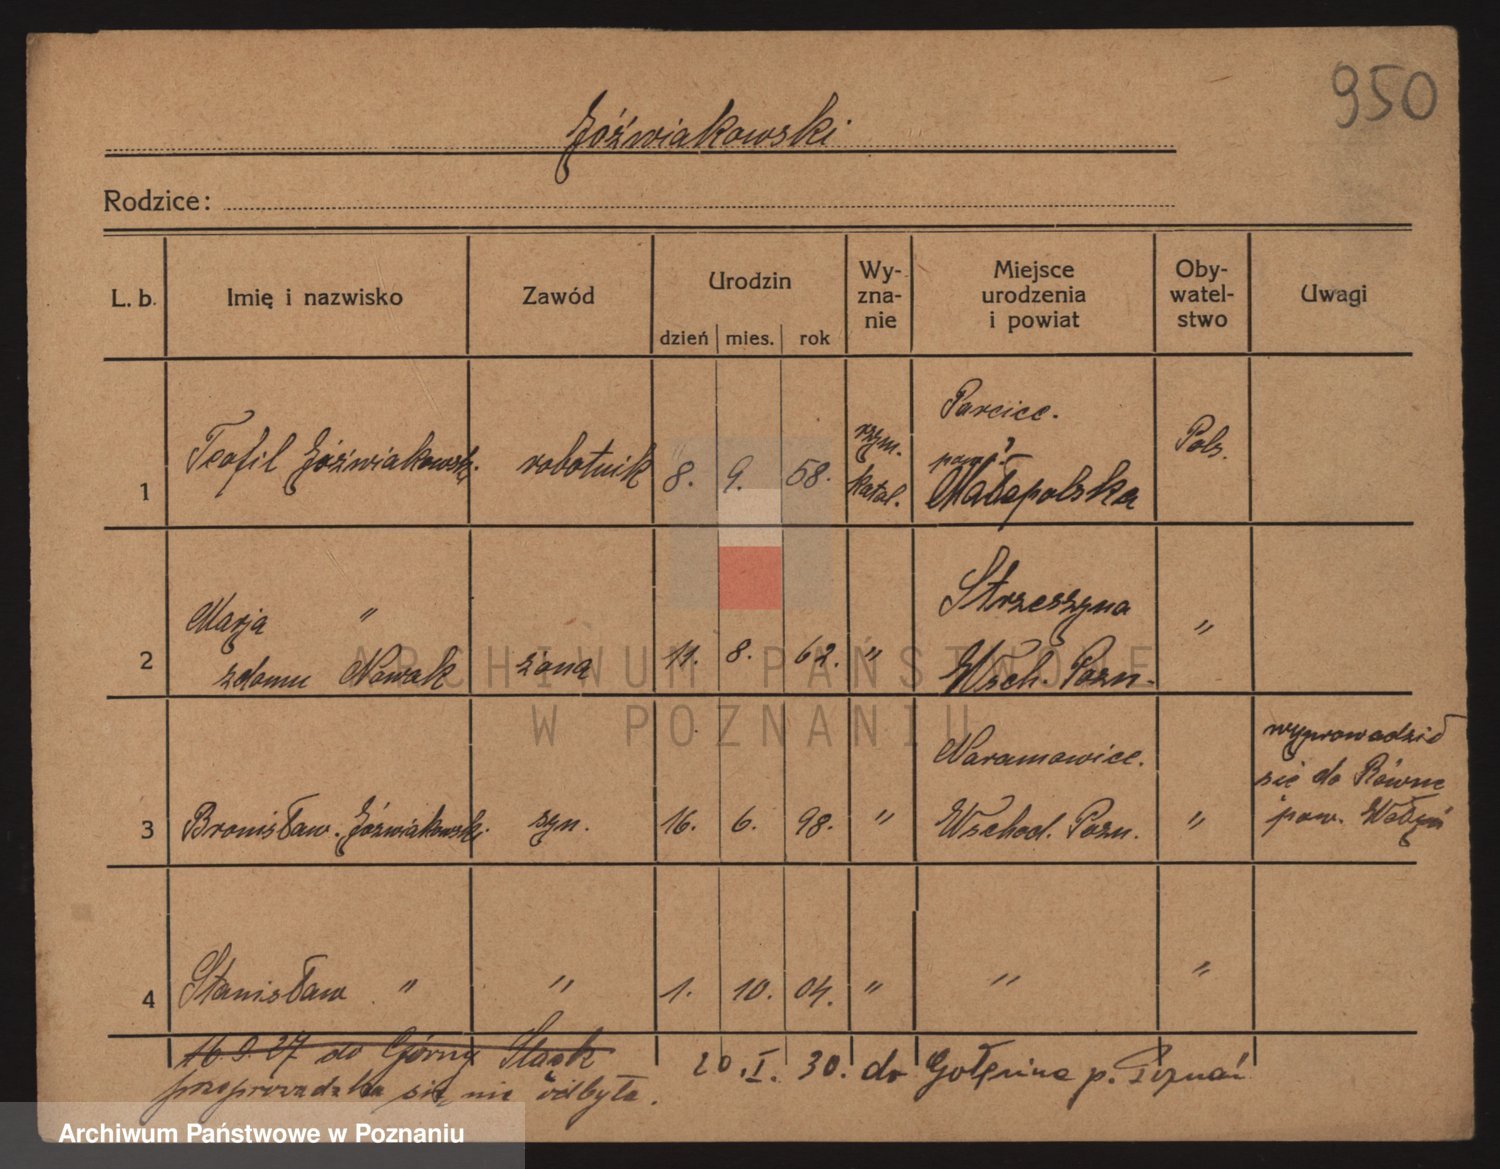 950
Jóźwiakowski
Rodzice:
L. b.
Imię i nazwisko
Zawód
Urodzin
dzień mies. rok
Wy-
zna-
nie
Miejsce
urodzenia
i powiat
Oby-
watel-
stwo
Uwagi
1 Teofil Jóźwiakowski robotnik 8. 9. 58. rzym. katol.
Parcice.
pow?
Małopolska
Pols.
2 Marja " zdomu Nowak żona 11. 8. 62. "
Strzeszyna
Wsch. Pozn.
"
3 Bronisław Jóźwiakowski. syn. 16. 6. 98. "
Naramowice.
Wschod. Pozn.
"
wyprowadził
się do Równe
pow. Wołyń
4 Stanisław " " 1. 10. 04. " " "
16 9. 27 do Górny Śląsk
przeprowadzka się nie odbyła.
20. I. 30. do Golęcina p. Poznań
ARCHIWUM PAŃSTWOWE
W POZNANIU
Archiwum Państwowe w Poznaniu